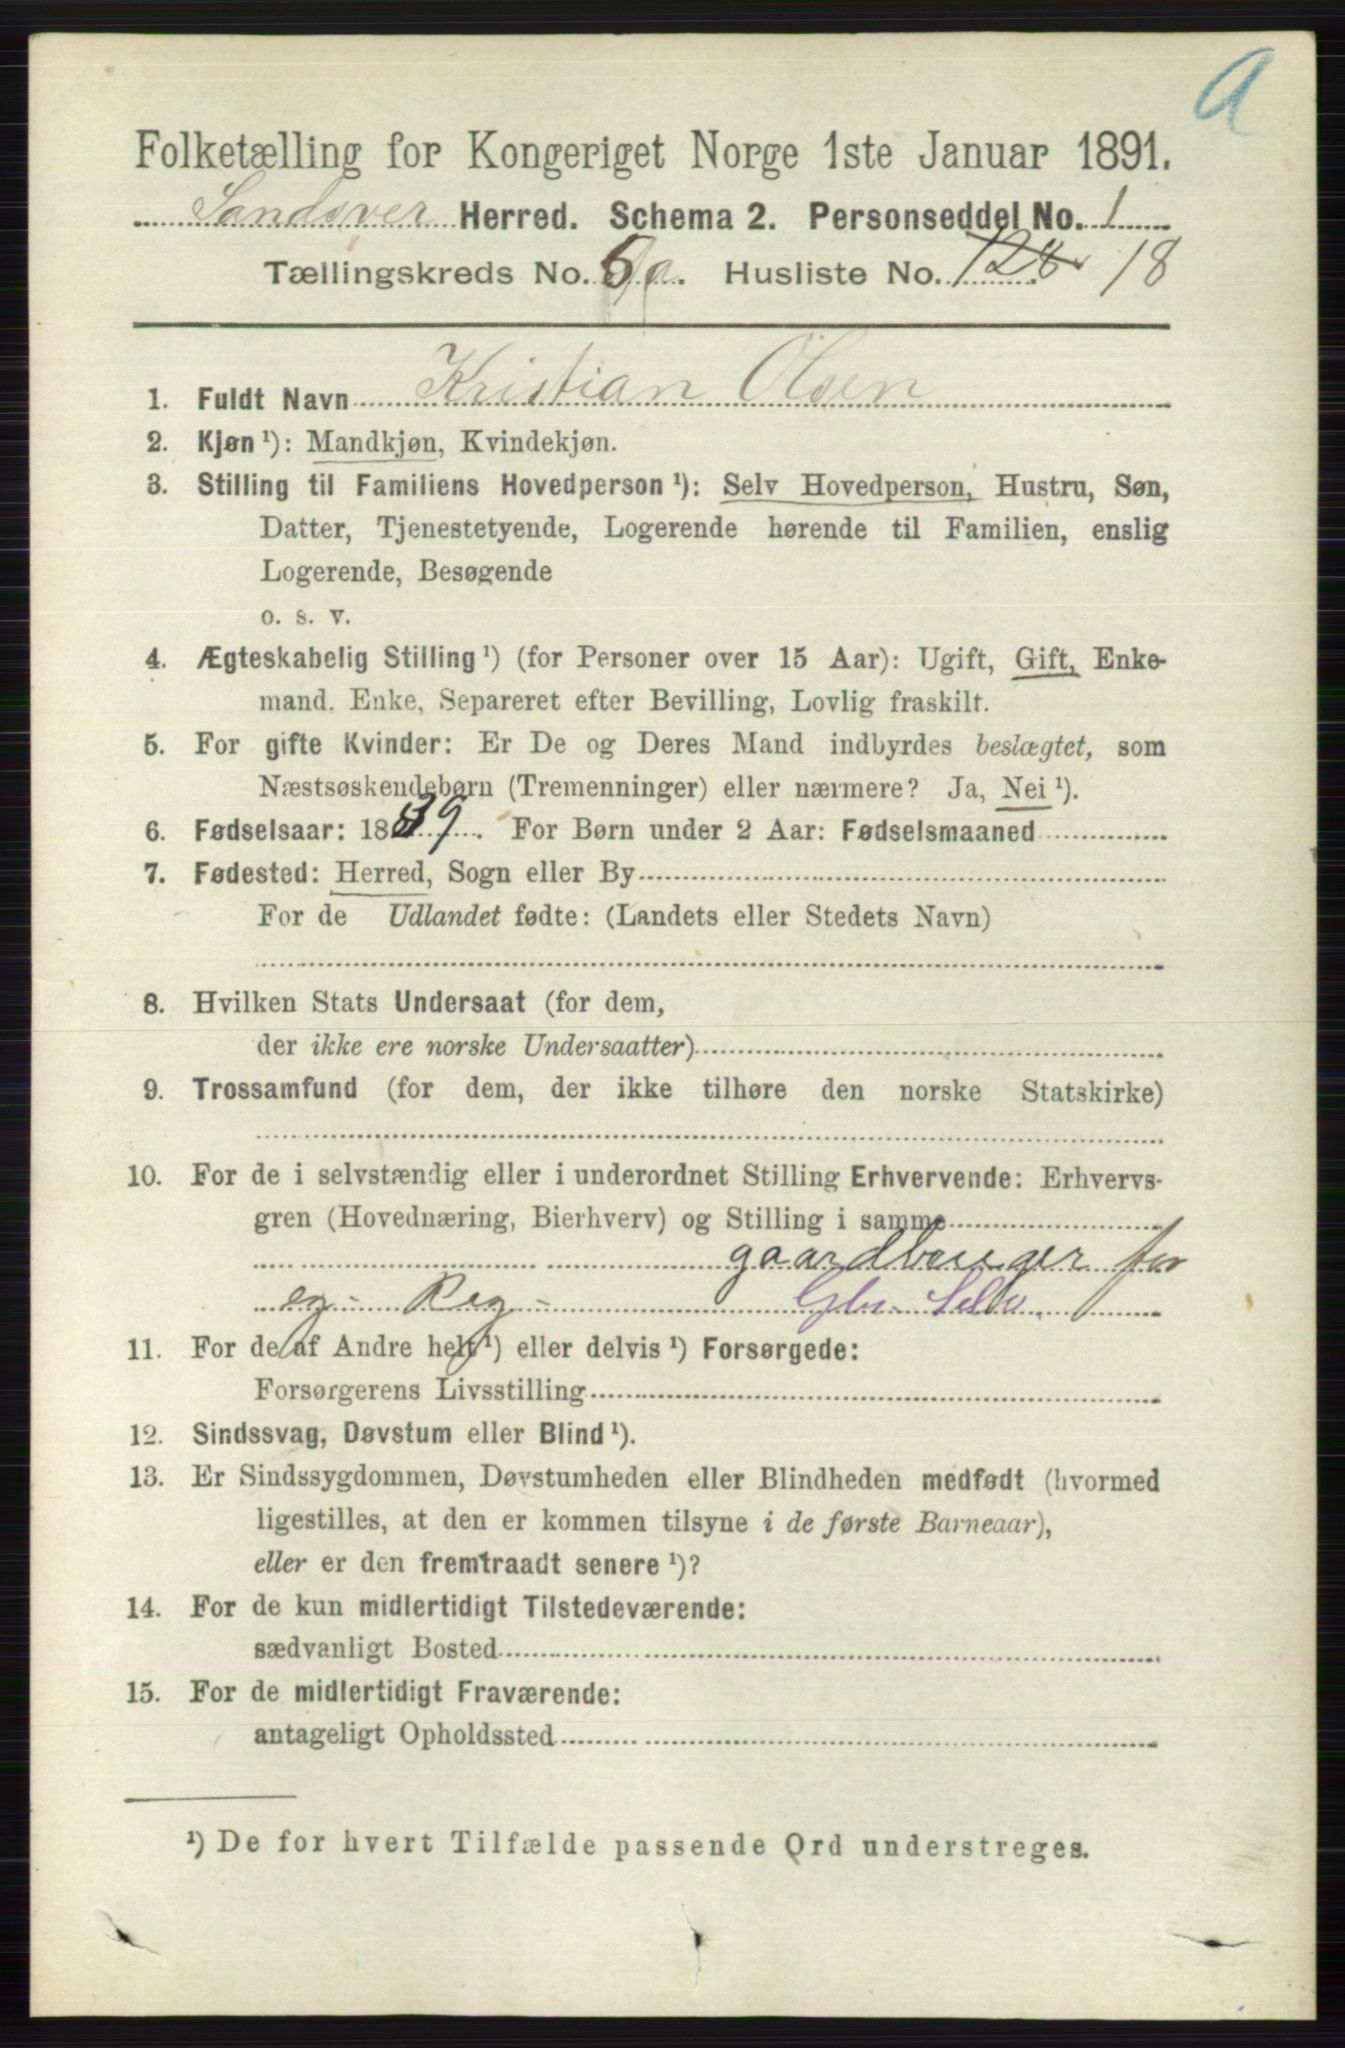 A
Folketælling for Kongeriget Norge 1ste Januar 1891.
Sandsver Herred. Schema 2. Personseddel No. 1
Tællingskreds No. 6a. Husliste No. 128 18
1. Fuldt Navn Kristian Olsen
2. Kjøn ¹): Mandkjøn, Kvindekjøn.
3. Stilling til Familiens Hovedperson ¹): Selv Hovedperson, Hustru, Søn,
Datter, Tjenestetyende, Logerende hørende til Familien, enslig
Logerende, Besøgende
o. s. v.
4. Ægteskabelig Stilling ¹) (for Personer over 15 Aar): Ugift, Gift, Enke-
mand, Enke, Separeret efter Bevilling, Lovlig fraskilt.
5. For gifte Kvinder: Er De og Deres Mand indbyrdes beslægtet, som
Næstsøskendebørn (Tremenninger) eller nærmere? Ja, Nei ¹).
6. Fødselsaar: 1839. For Børn under 2 Aar: Fødselsmaaned
7. Fødested: Herred, Sogn eller By
For de Udlandet fødte: (Landets eller Stedets Navn)
8. Hvilken Stats Undersaat (for dem,
der ikke ere norske Undersaatter)
9. Trossamfund (for dem, der ikke tilhøre den norske Statskirke)
10. For de i selvstændig eller i underordnet Stilling Erhvervende: Erhvervs-
gren (Hovednæring, Bierhverv) og Stilling i samme
gaardbruger for
eg- Reg- Gbr. Selv.
11. For de af Andre helt ¹) eller delvis ¹) Forsørgede:
Forsørgerens Livsstilling
12. Sindssvag, Døvstum eller Blind ¹).
13. Er Sindssygdommen, Døvstumheden eller Blindheden medfødt (hvormed
ligestilles, at den er kommen tilsyne i de første Barneaar),
eller er den fremtraadt senere ¹)?
14. For de kun midlertidigt Tilstedeværende:
sædvanligt Bosted
15. For de midlertidigt Fraværende:
antageligt Opholdssted
¹) De for hvert Tilfælde passende Ord understreges.